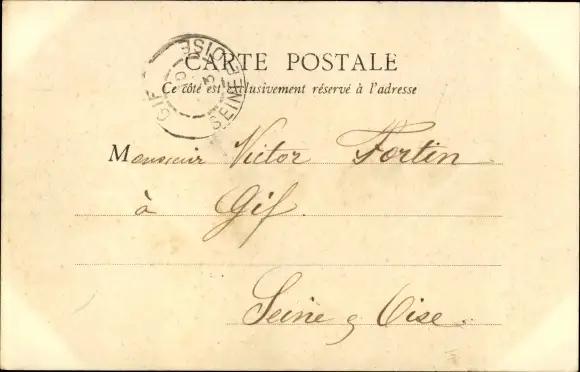 CARTE POSTALE
Ce côté est exclusivement réservé à l'adresse
GIF
SEINE ET OISE
Monsieur Victor Fortin
à Gif
Seine & Oise.